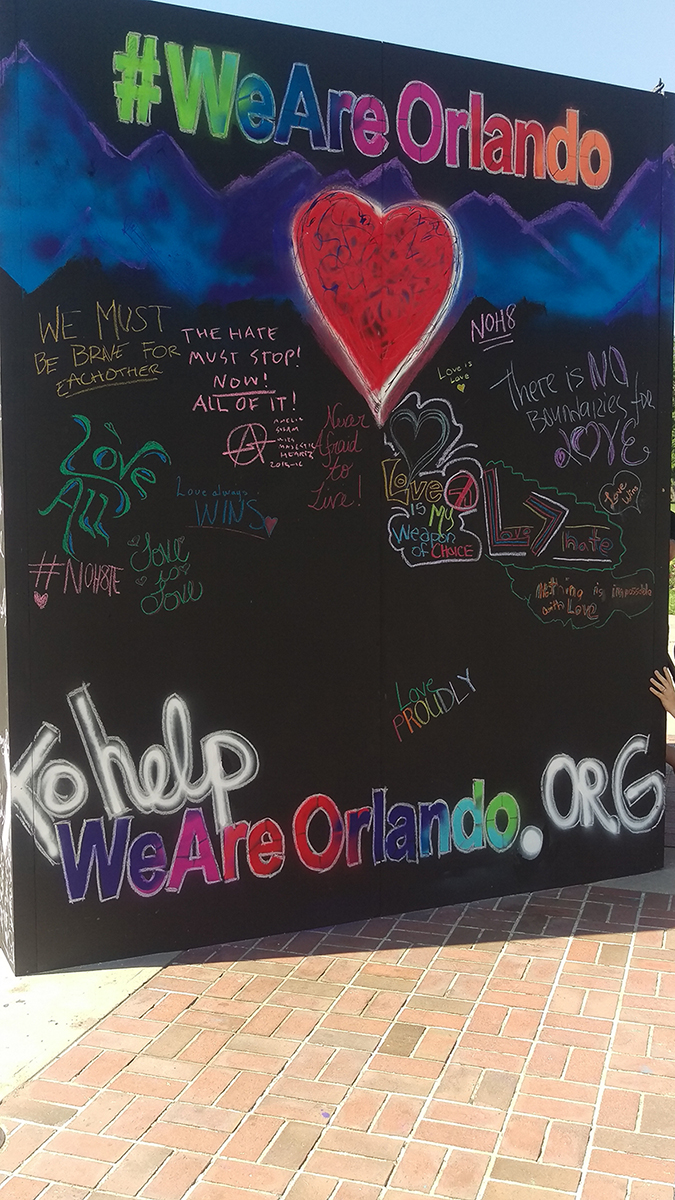 #WeAreOrlando
WE MUST
BE BRAVE FOR
EACHOTHER
THE HATE
MUST STOP!
NOW!
ALL OF IT!
NOH8
Love is
Love
There is NO
Boundaries for
LOVE
Never
Afraid
to
Live!
LOVE
ALL
Love always
WINS
Love
IS MY
Weapon
OF CHOICE
Love > hate
Love
wins
#NOH8TE
Love
is
Love
Nothing is impossible
with Love
Love
PROUDLY
To help
WeAreOrlando.ORG